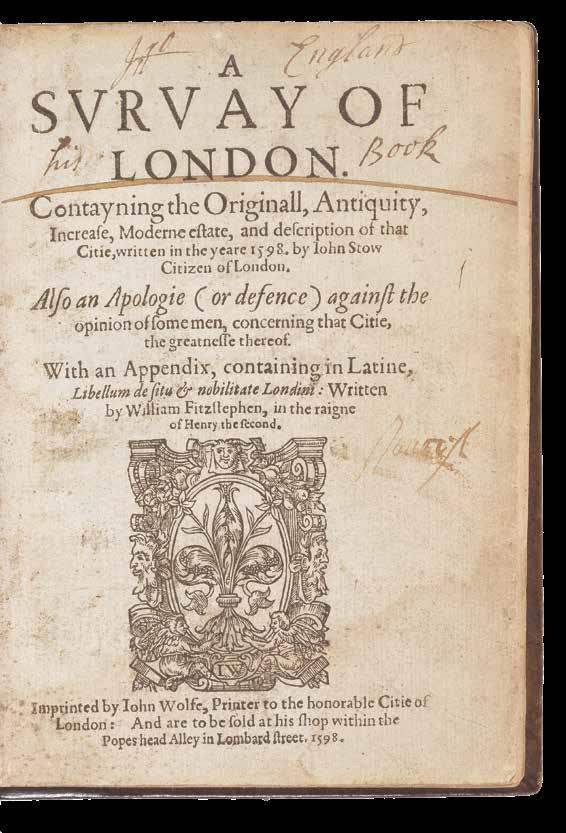 England
A
SVRVAY OF
his LONDON. Book
Contayning the Originall, Antiquity,
Increaſe, Moderne eſtate, and deſcription of that
Citie, written in the yeare 1598. by Iohn Stow
Citizen of London.
Alſo an Apologie (or defence) againſt the
opinion of ſome men, concerning that Citie,
the greatneſſe thereof.
With an Appendix, containing in Latine,
Libellum de ſitu & nobilitate Londini: Written
by William Fitzſtephen, in the raigne
of Henry the ſecond.
IW
Imprinted by Iohn Wolfe, Printer to the honorable Citie of
London: And are to be ſold at his ſhop within the
Popes head Alley in Lombard ſtreet. 1598.